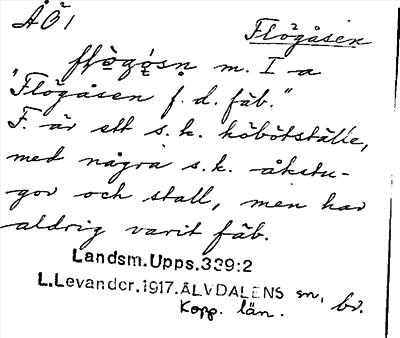 ÅÖ1
Flögåsen
m. I a
"Flögåsen f. d. fäb."
F. är ett s. k. köbötställe,
med några s. k. åkstu-
gor och stall, men har
aldrig varit fäb.
Landsm.Upps.339:2
L.Levander.1917.ÄLVDALENS sn, bv.
Kopp. län.